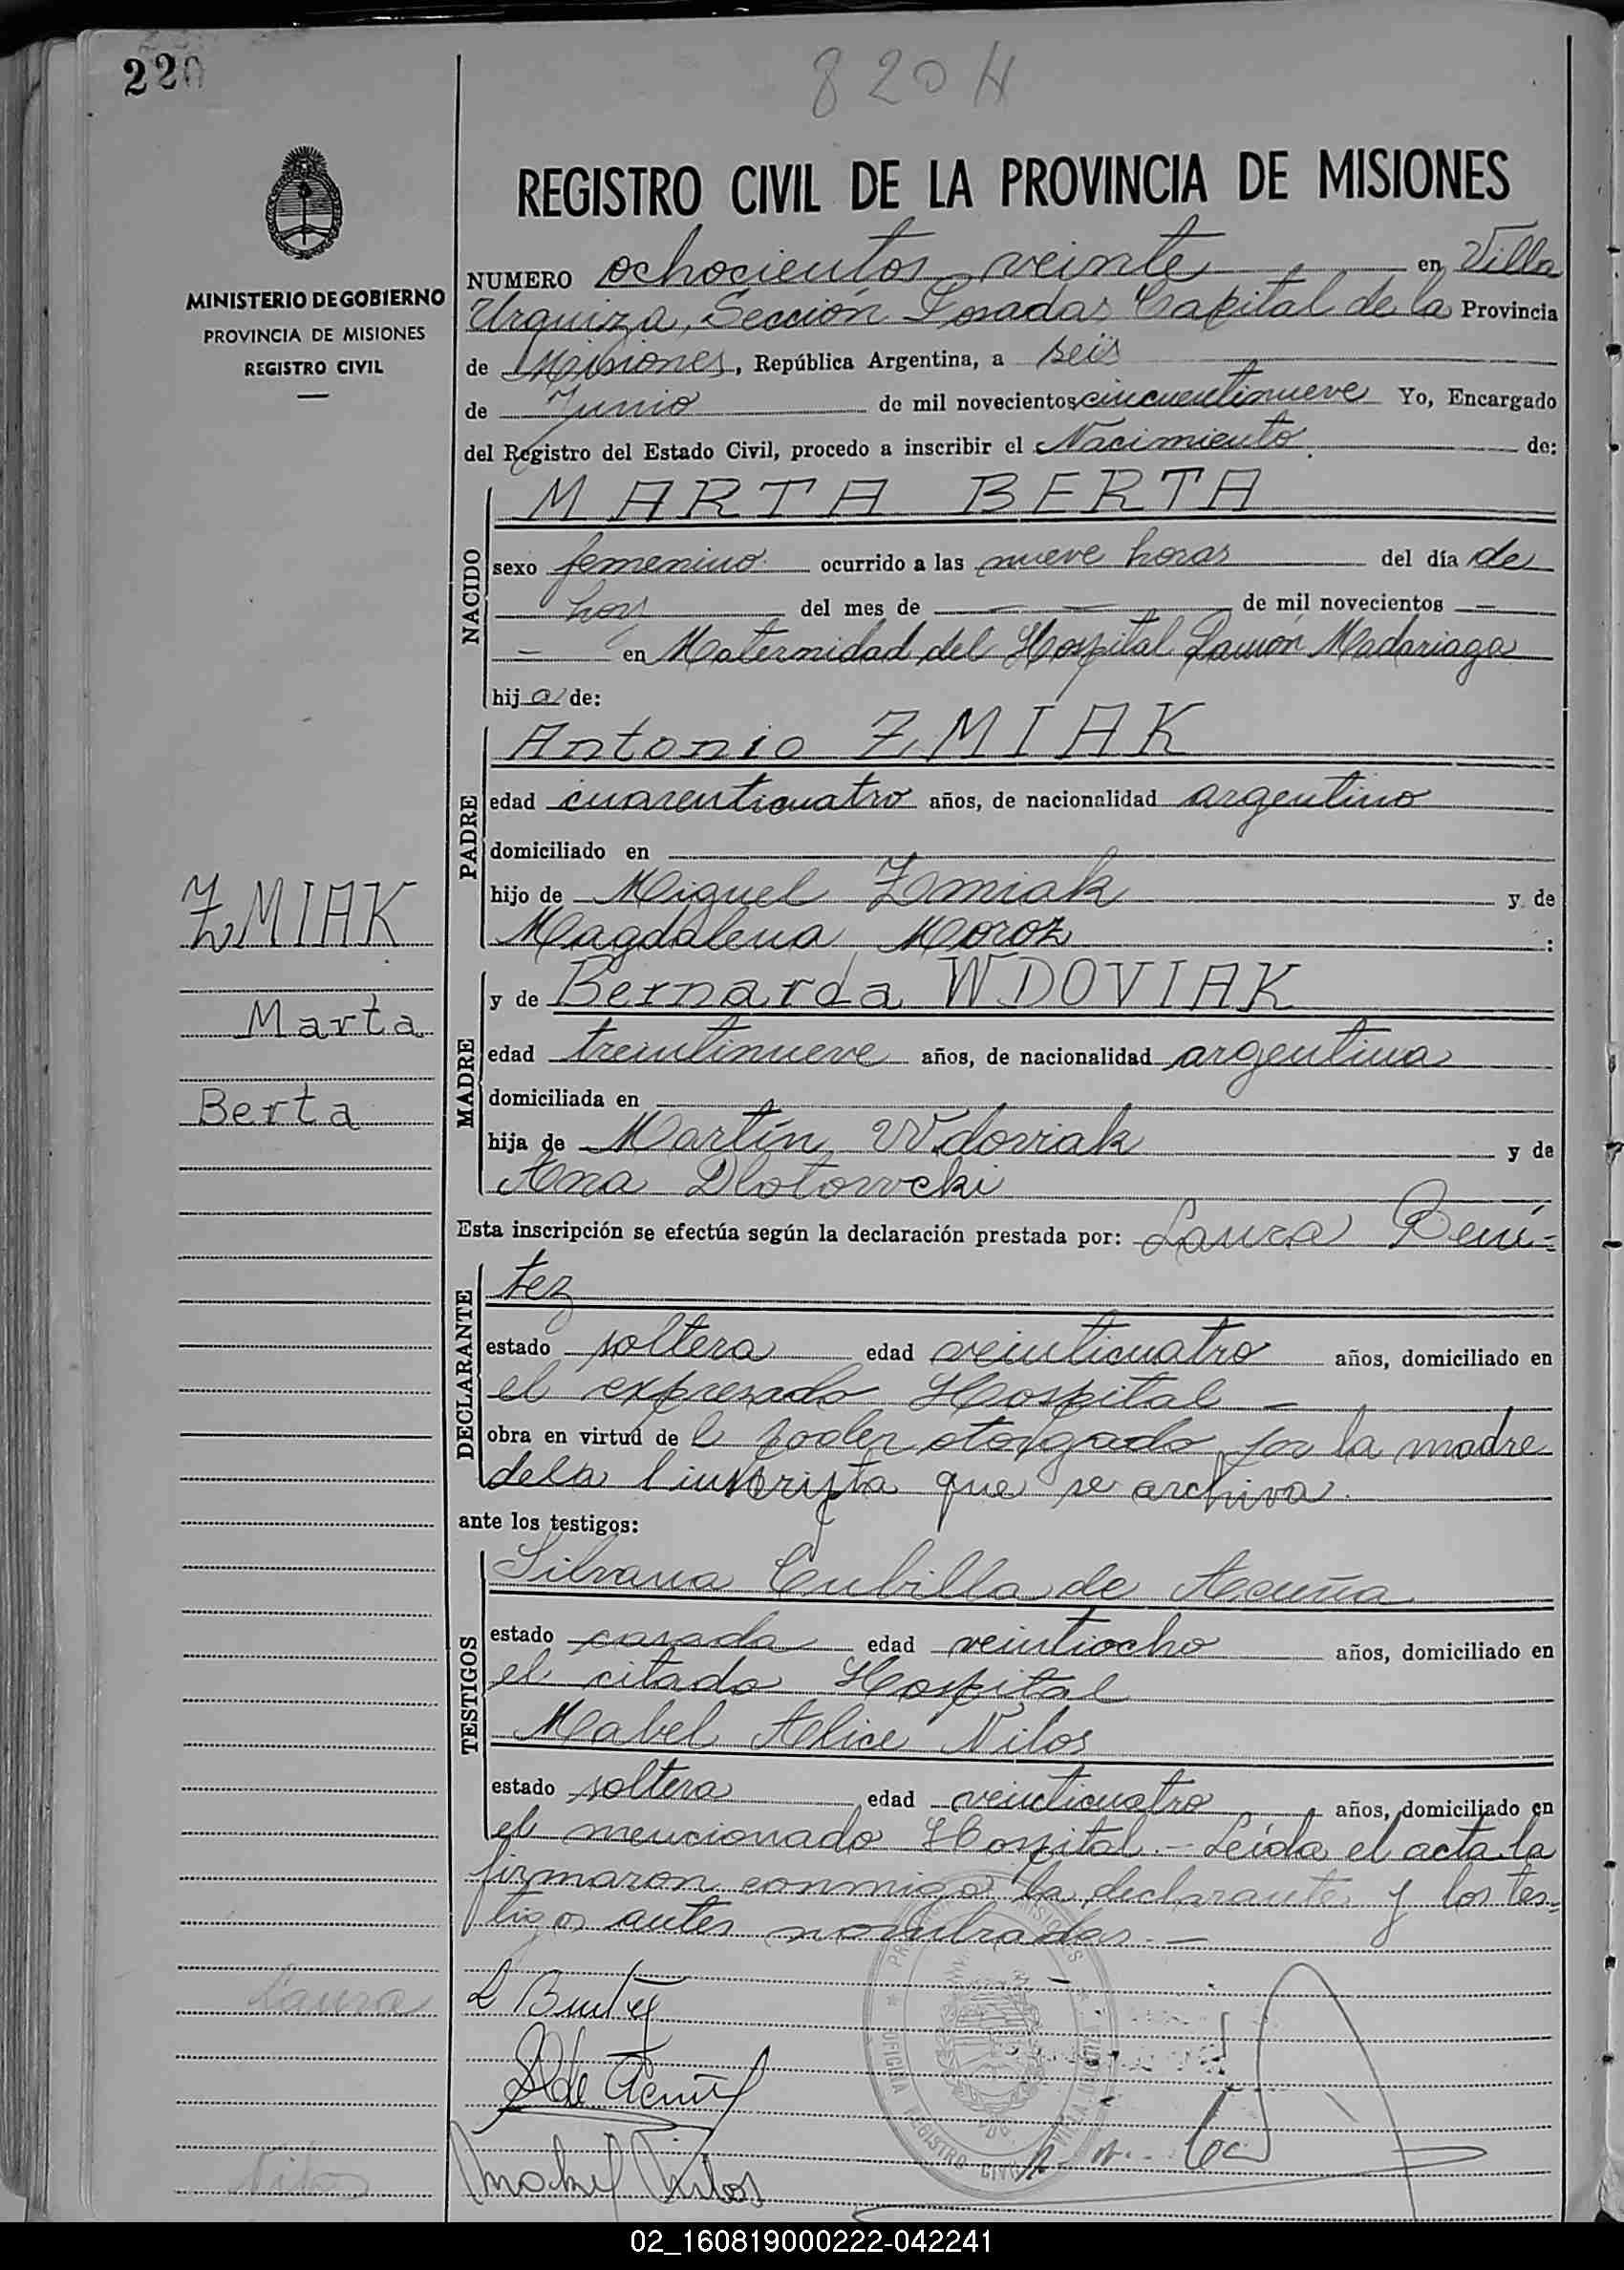 220
820 H
MINISTERIO DE GOBIERNO
PROVINCIA DE MISIONES
REGISTRO CIVIL
REGISTRO CIVIL DE LA PROVINCIA DE MISIONES
NUMERO ochocientos veinte en Villa
Urquiza, Sección Posadas Capital de la Provincia
de Misiones, República Argentina, a seis
de Junio de mil novecientos cincuentinueve Yo, Encargado
del Registro del Estado Civil, procedo a inscribir el Nacimiento de:
NACIDO
MARTA BERTA
sexo femenino ocurrido a las nueve horas del día de
hoy del mes de — — de mil novecientos —
— en Maternidad del Hospital Ramón Madariaga
hija de:
PADRE
Antonio ZMIAK
edad cuarenticuatro años, de nacionalidad argentino
domiciliado en
hijo de Miguel Zmiak y de
Magdalena Moroz :
ZMIAK
Marta
Berta
MADRE
y de Bernarda WDOVIAK
edad treintinueve años, de nacionalidad argentina
domiciliada en
hija de Martín Wdoviak y de
Ana Dlotowcki
Esta inscripción se efectúa según la declaración prestada por: Laura Bení=
DECLARANTE
tez
estado soltera edad veinticuatro años, domiciliado en
el expresado Hospital —
obra en virtud de l poder otorgado por la madre
dela inscripta que se archiva.
ante los testigos:
TESTIGOS
Silvana Cubilla de Acuña
estado casada edad veintiocho años, domiciliado en
el citado Hospital
Mabel Alice Nilos
estado soltera edad veinticuatro años, domiciliado en
el mencionado Hospital.- Leída el acta la
firmaron conmigo la declarante y los tes=
tigos antes nombrados.—
Laura
L Benítez
S de Acuña
Mabel Nilos
Nilos
OFICINA REGISTRO CIVIL VILLA URQUIZA
02_160819000222-042241